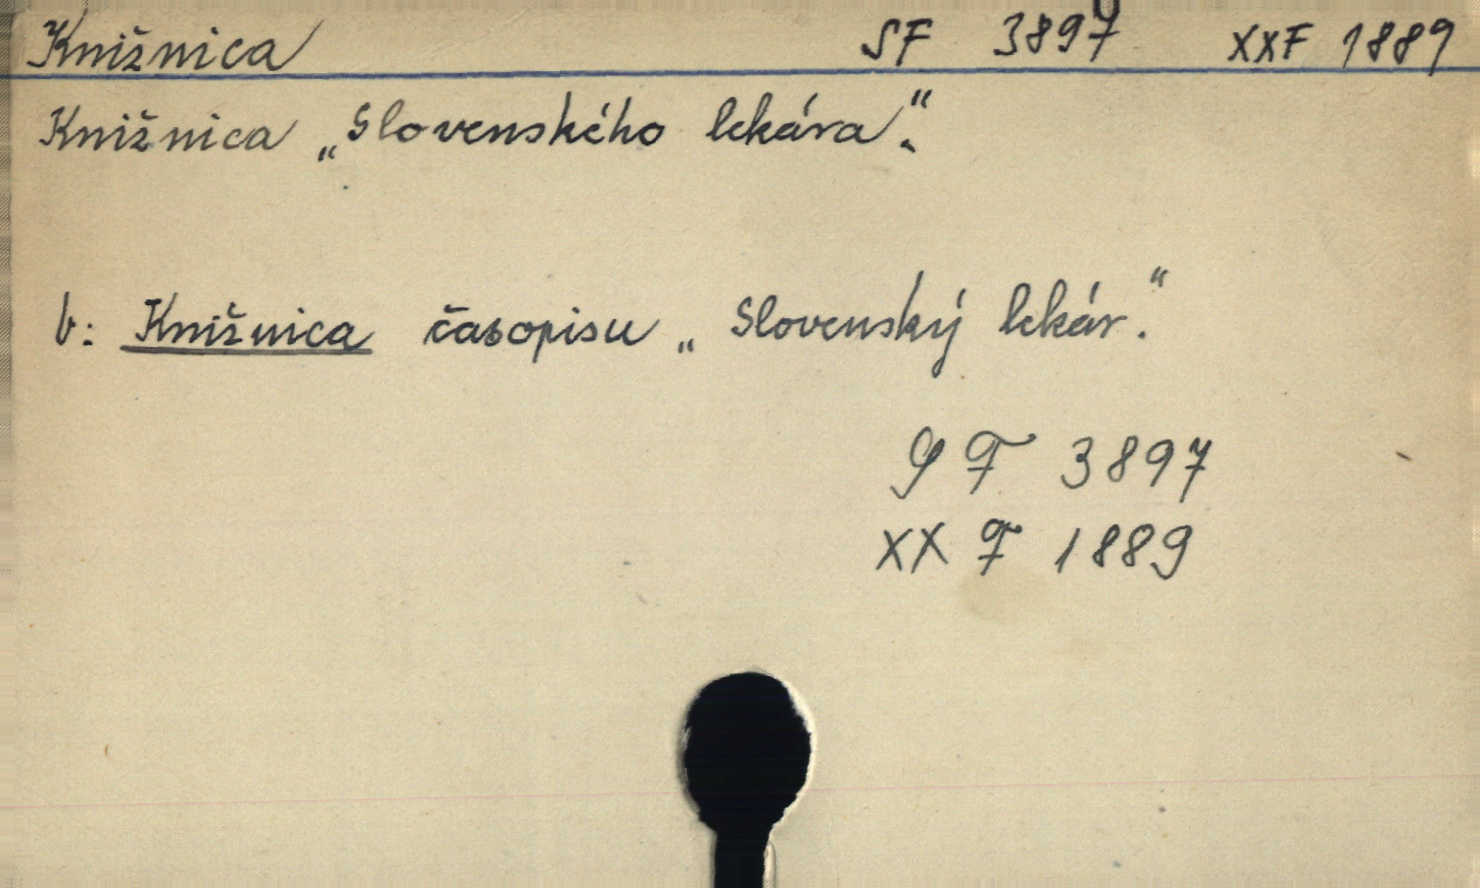 Knižnica SF 3897 XXF 1889
Knižnica „Slovenského lekára“.
b: Knižnica časopisu „Slovenský lekár.“
SF 3897
XX F 1889